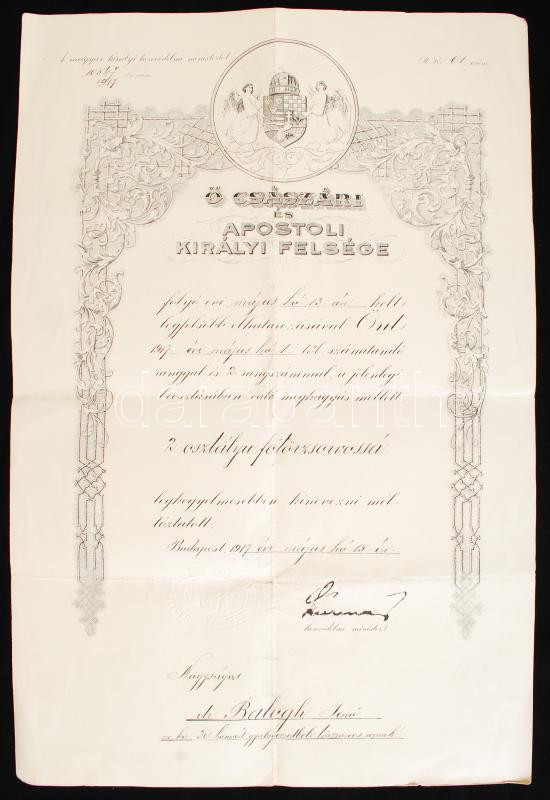 A magyar királyi honvédelmi ministertől
10547
1917
61 szám
Ő CSÁSZÁRI
ÉS
APOSTOLI
KIRÁLYI FELSÉGE
folyó évi május hó 13 án kelt
legfelsőbb elhatározásával Önt
1917 évi május hó 1-től számítandó
ranggal és 2 rangszámmal, a jelenlegi
beosztásában való meghagyás mellett
2 osztályu főtörzsorvossá
legkegyelmesebben kinevezni mél-
tóztatott.
Budapest, 1917 évi május hó 15 én.
honvédelmi minister
Nagyságos
dr Balogh Jenő
m. kir. honvéd törzsorvos urnak
darabanth